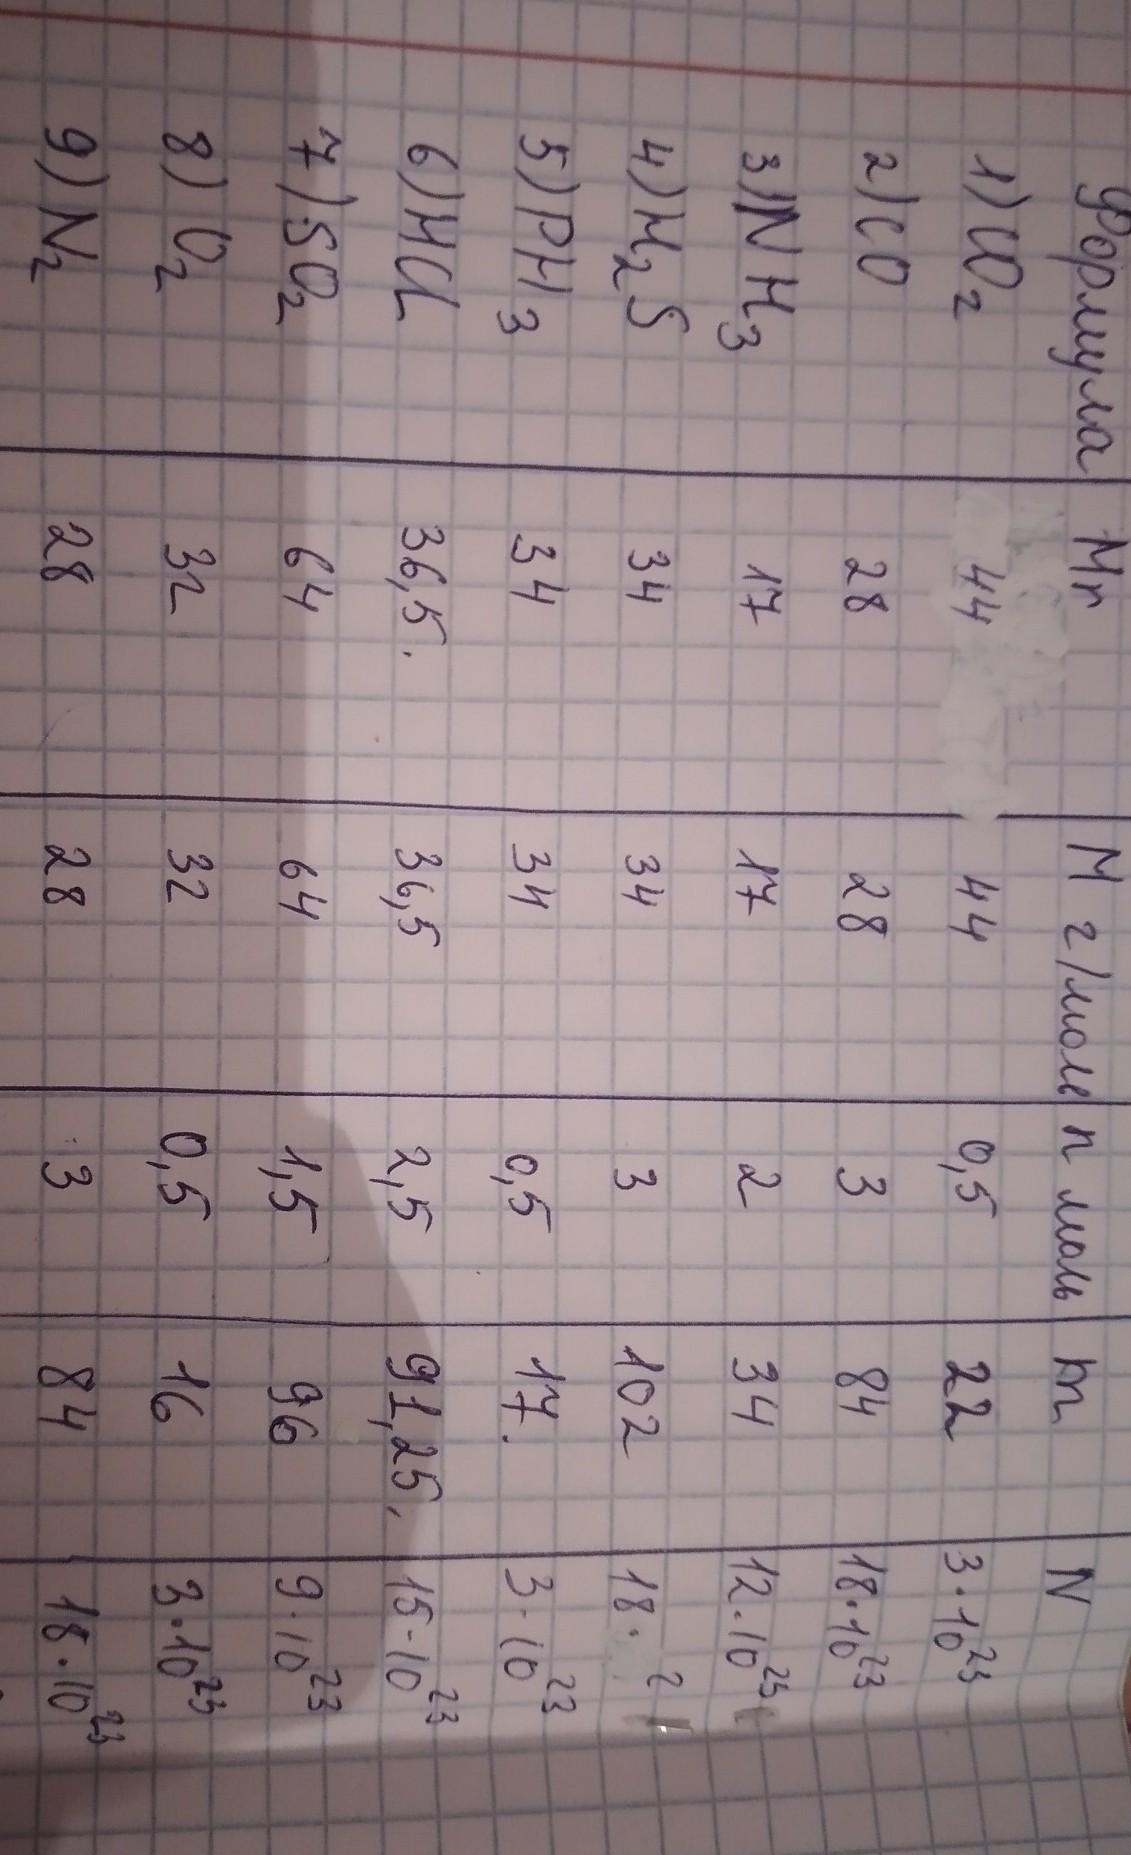 Формула Mr M г/моль n моль m N
1) CO₂ 44 44 0,5 22 3·10²³
2) CO 28 28 3 84 18·10²³
3) NH₃ 17 17 2 34 12·10²³
4) H₂S 34 34 3 102 18·
5) PH₃ 34 34 0,5 17. 3·10²³
6) HCl 36,5. 36,5 2,5 91,25. 15·10²³
7) SO₂ 64 64 1,5 96 9·10²³
8) O₂ 32 32 0,5 16 3·10²³
9) N₂ 28 28 3 84 18·10²³